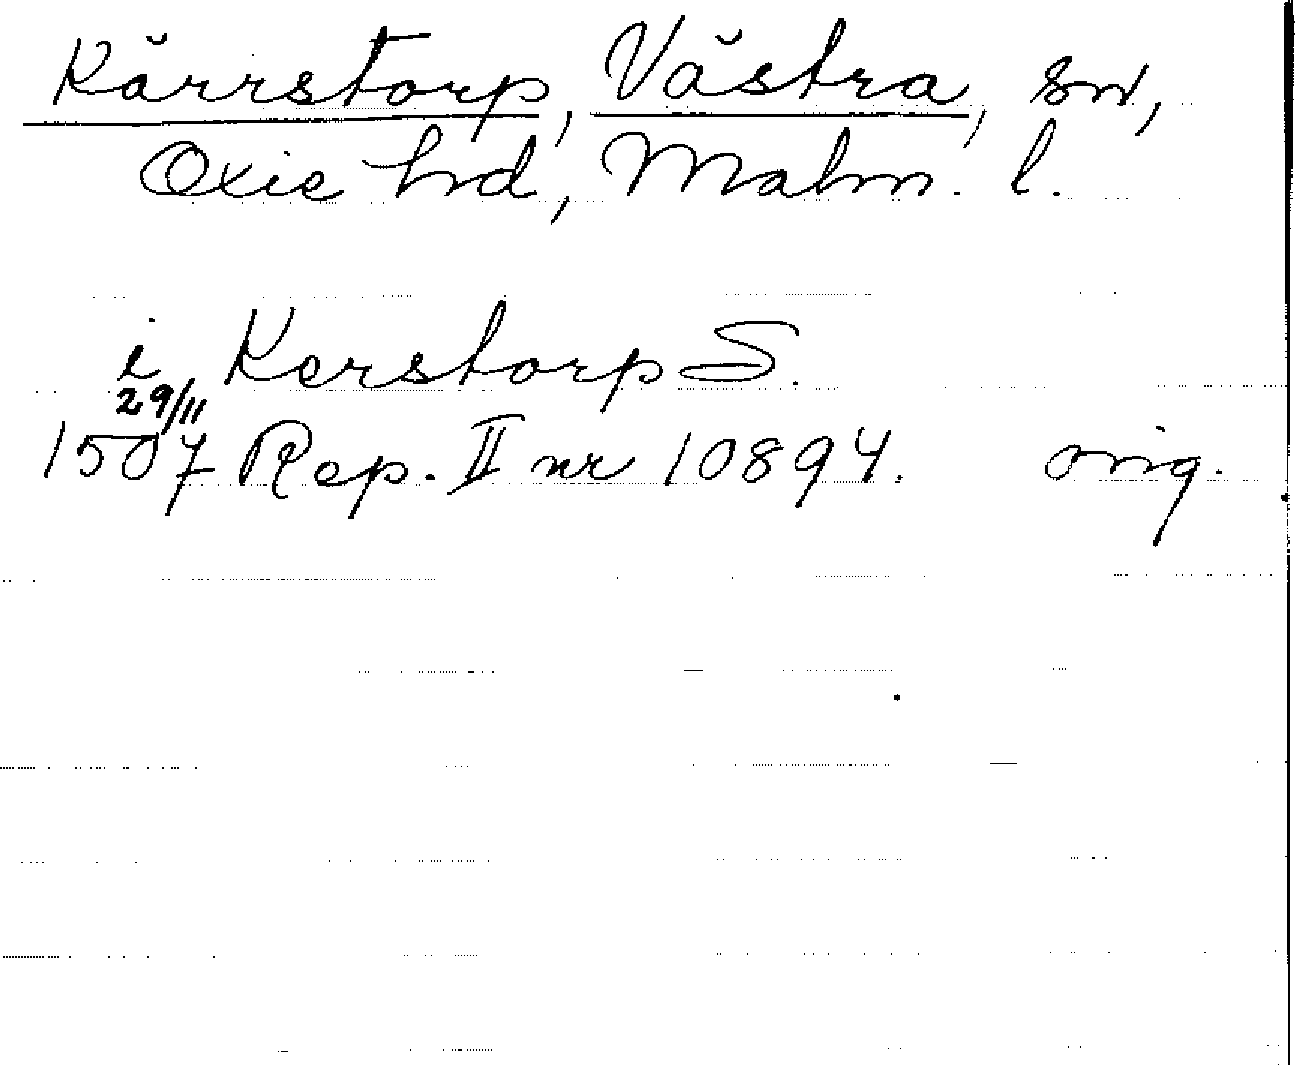 Kärrstorp, Västra, sn,
Oxie hd, Malm. l.
i Kerstorp S.
29/11
1507 Rep. II nr 10894. orig.